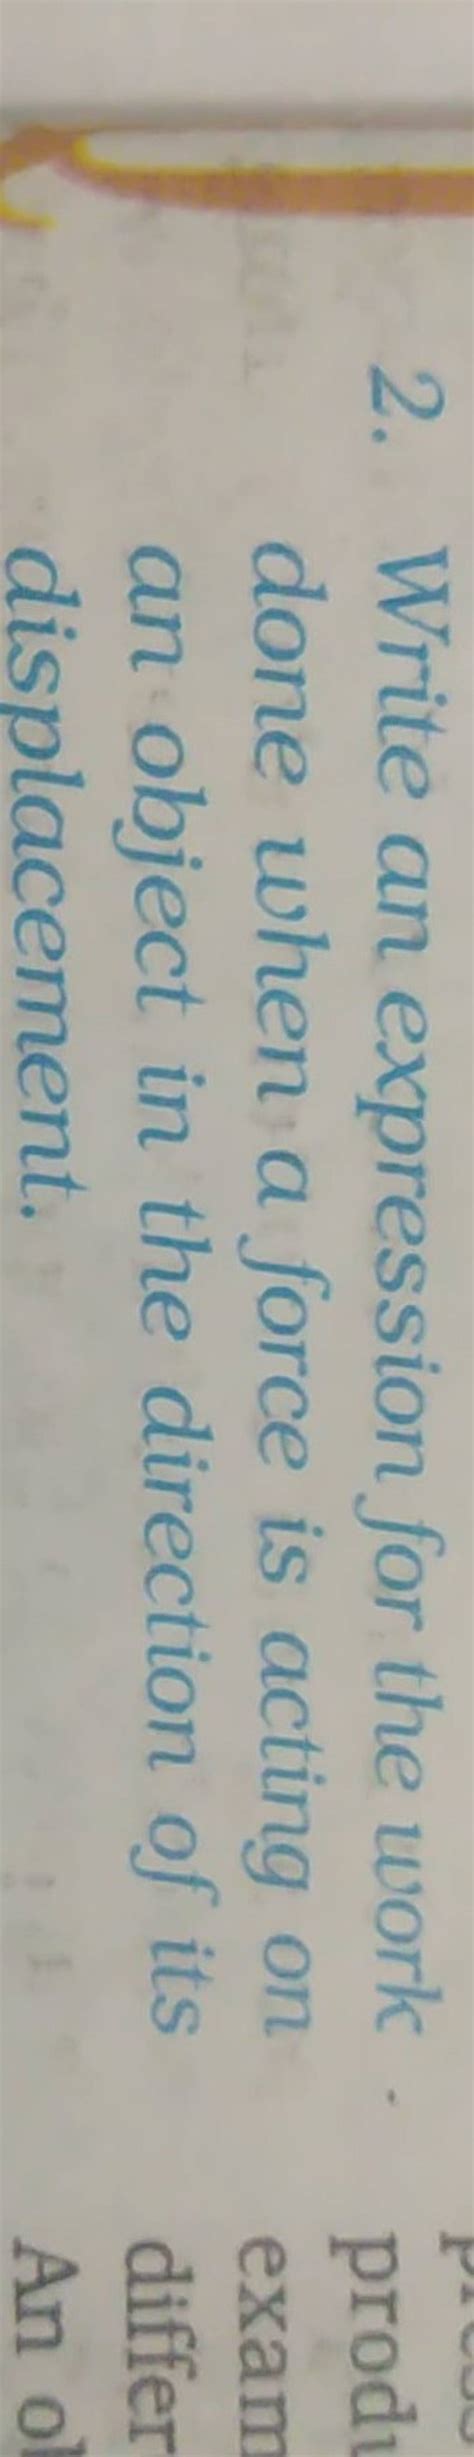 2. Write an expression for the work
done when a force is acting on
an object in the direction of its
displacement.
exam
differ
An